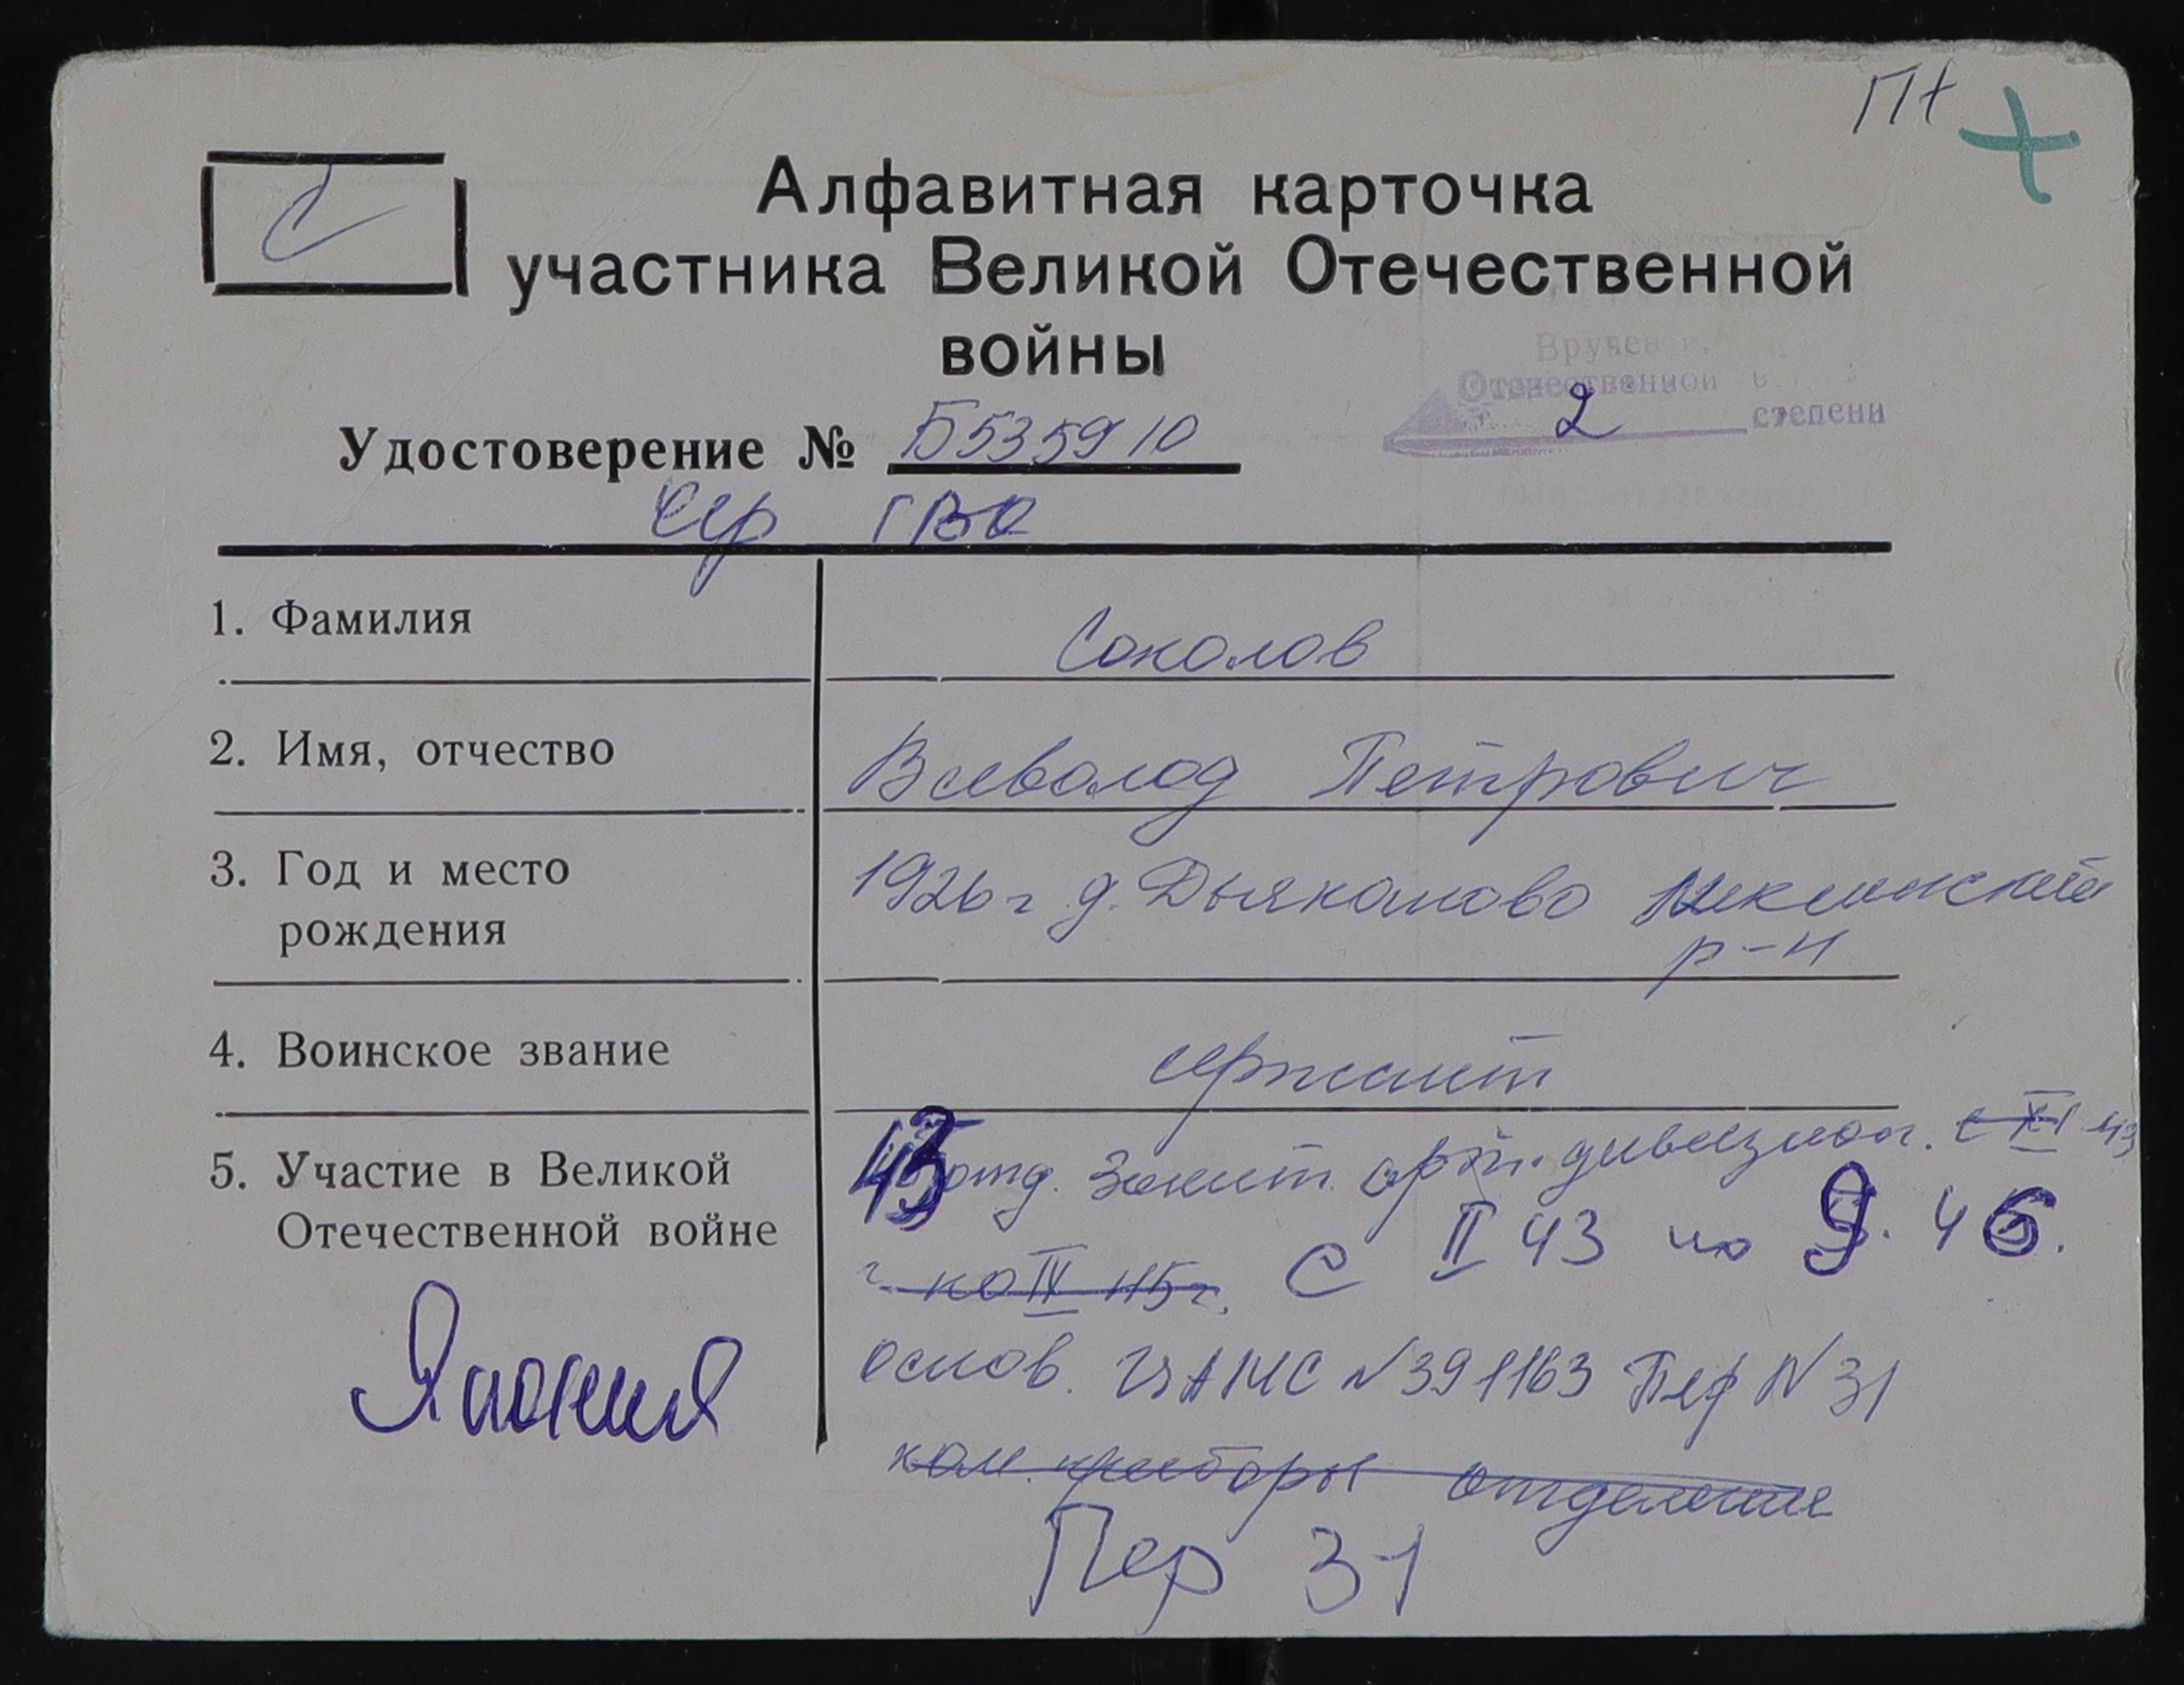 П+
С
Алфавитная карточка
участника Великой Отечественной
войны
Вручен
Отечественной в
2 степени
Удостоверение № Б535910
сер ГВО
1. Фамилия Соколов
2. Имя, отчество Всеволод Петрович
3. Год и место 1926 г д. Дьяконово
рождения р-н
4. Воинское звание сержант
43 отд. зенит. арт. дивизион. с XI 43
5. Участие в Великой
Отечественной войне
г по IV 45 г. С II 43 по 9. 45.
основ. N 391163 Пер N 31
Япония
ком. приборы отделение
Пер 31